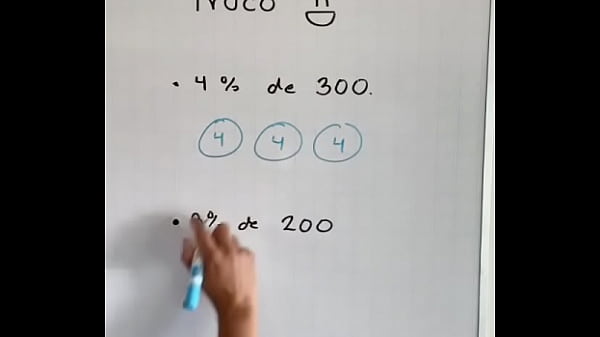 TRUCO
• 4% de 300.
4 4 4
• % de 200